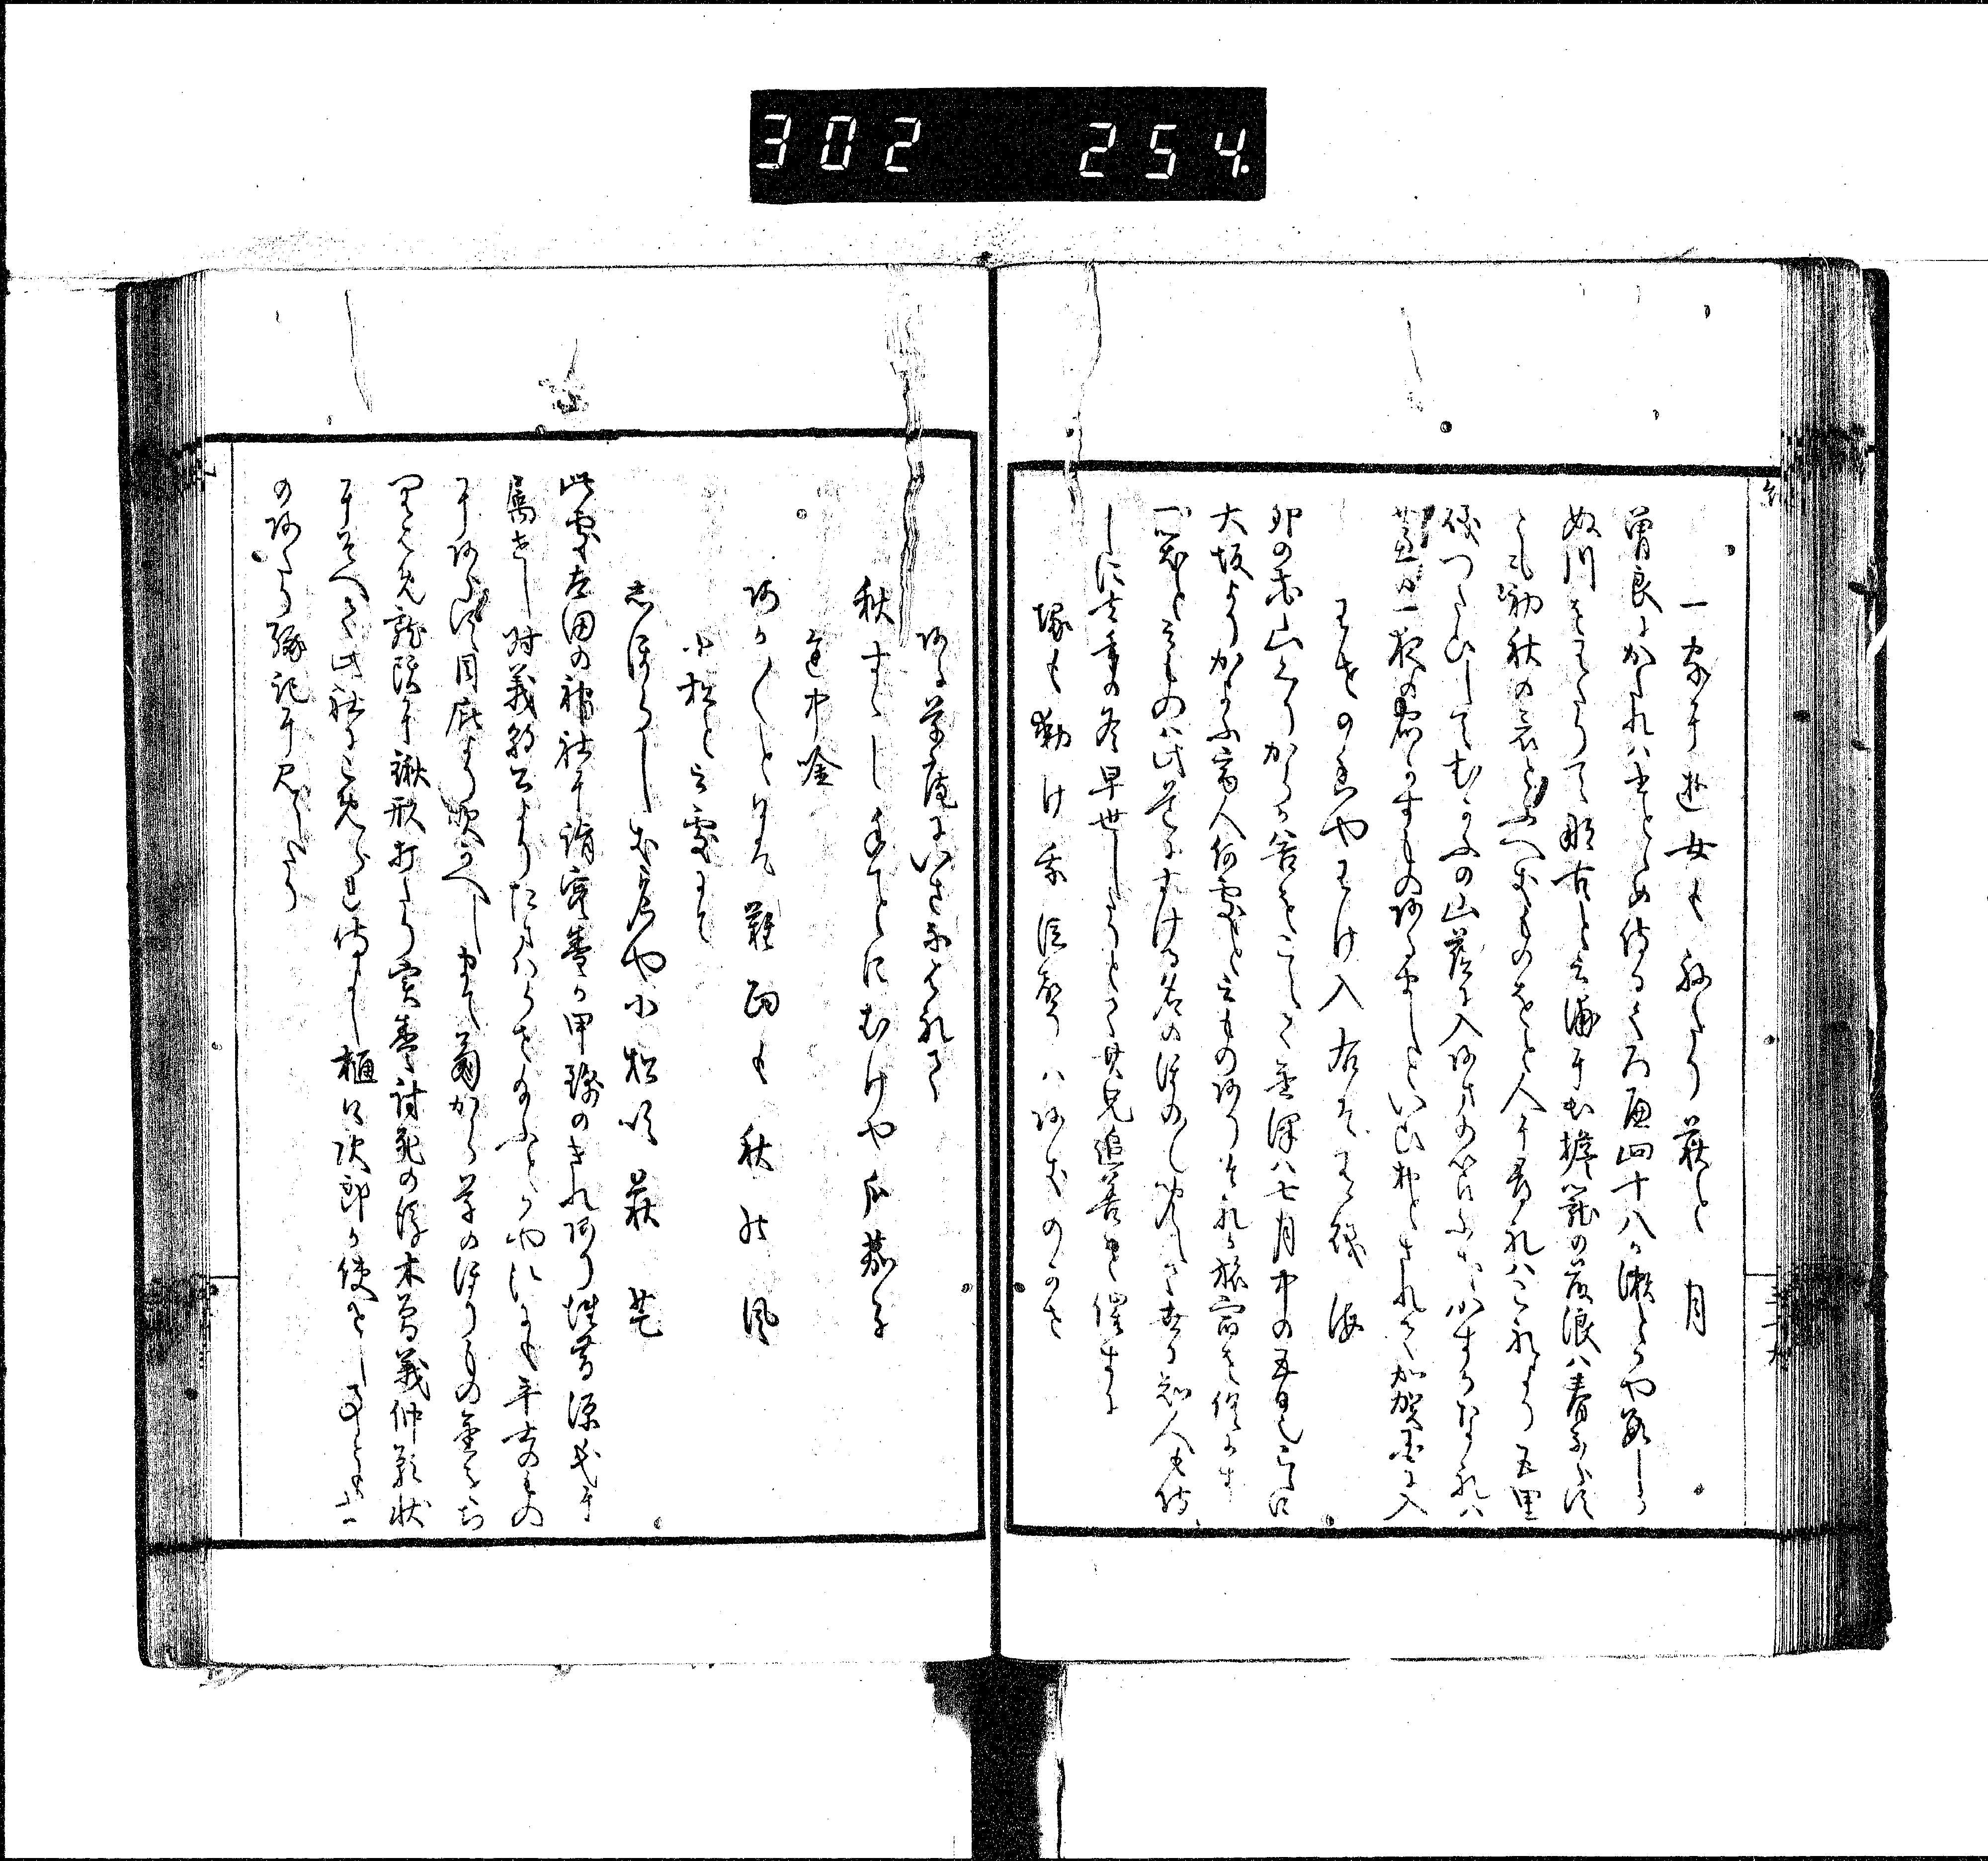 302 254.
一家に遊女も祢たり萩と月
曽良にかたれハ書とゝめ侍るくろへ四十八か瀬とかや数しら
ぬ川をわたりて那古と云浦に出擔籠の藤浪ハ春ならす
とも初秋の哀とふへきものをと人に尋れハこれより五里
磯つたひしてむかふの山蔭に入阿まの笘ふきかすかなれハ
蘆の一夜の宿かすもの阿るましといひおとされてかゝ加賀国に入
わせの香や王け入右ハ有磯海
卯の花山くりからか谷をこえて金澤ハ七月中の五日也爰に
大坂よりかよふ商人何處と云もの阿りそれか旅宿を倶にす
一笑と云ものハ此道にすける名のほの〱聞えて世に知人も侍
しに去年の冬早世したりとて其兄追善を催すに
塚も動け我泣聲ハ阿きのかせ
阿る草庵にいさなはれて
秋すゝし手ことにむけや瓜茄子
途中唫
阿か〱と日は難面も秋の風
小松と云處にて
志ほらしき名や小松吹萩芒
此處太田の神社に詣実盛か甲錦のきれ阿り往昔源氏に
属せし時義朝公よりたまはらせ給ふとかやけにも平士のもの
に阿らす目庇より吹かへしまて菊から草のほりもの金をち
りはめ龍頭に鍬形打たり実盛討死の後木曽義仲願状
にそへて此社にこめられ侍よし樋口次郎か使せし事とも
の阿たり縁記に見えたり